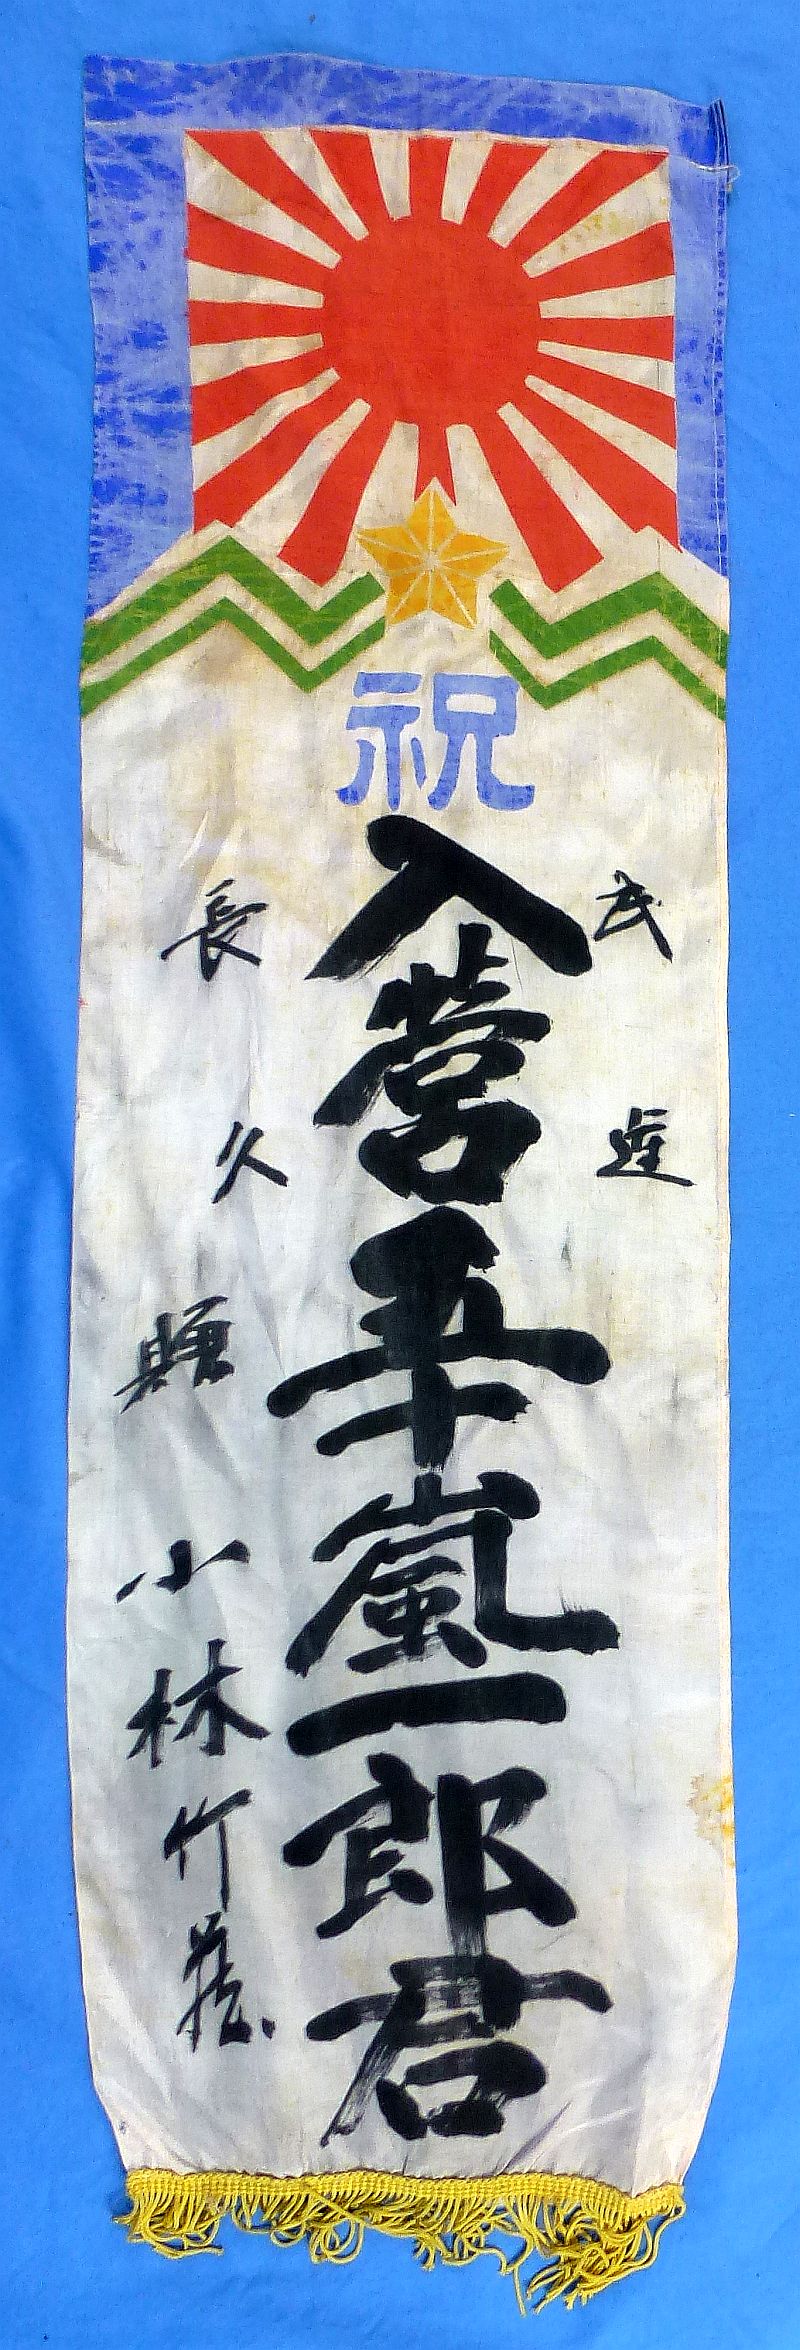 祝
武運
入営五十嵐一郎君
長久
小林竹蔵